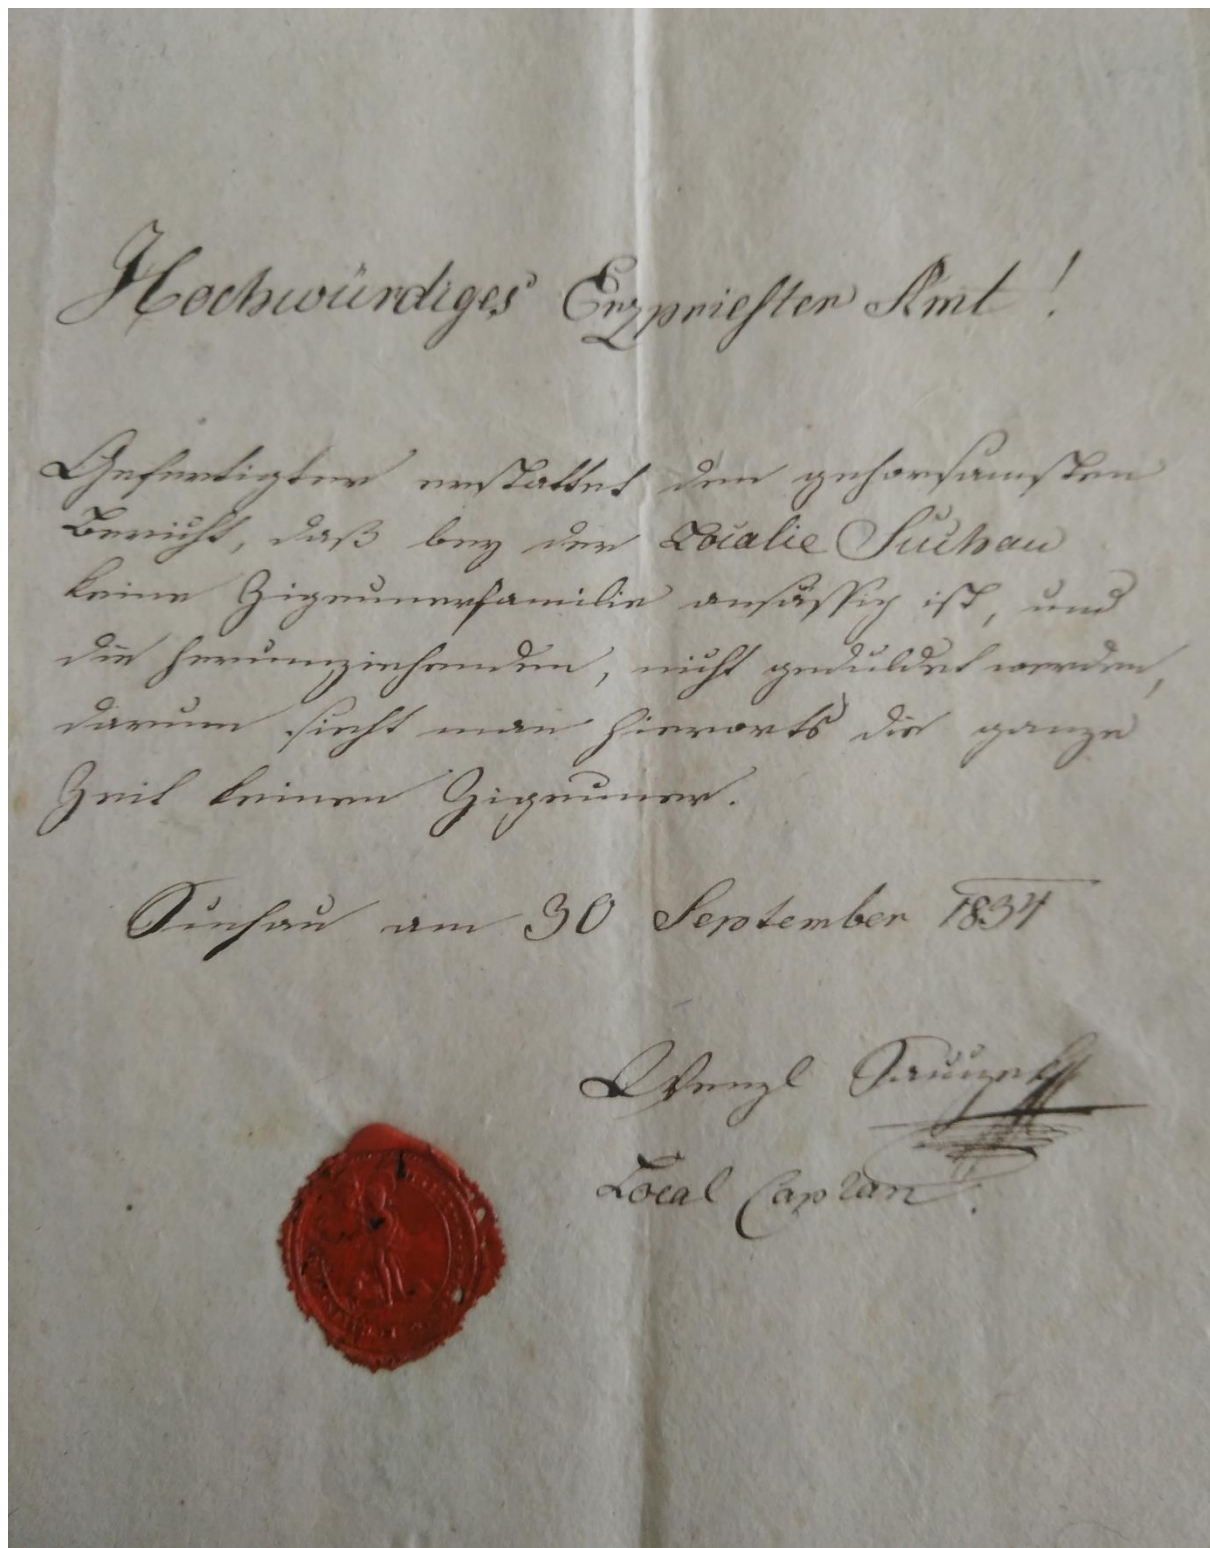 Hochwürdiges Erzpriester Amt!
Gefertigter erstattet den gehorsamsten
Bericht, daß bey der Localie Suchau
keine Zigeunerfamilie ansässig ist, und
die herumziehenden, nicht geduldet werden,
darum sieht man hierorts die ganze
Zeit keinen Zigeuner.
Suchau am 30 September 1834
Wenzl
Local Caplan.